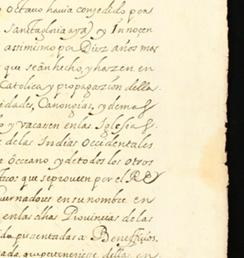 o octavo havia conzedido por
Sanctagloria aya) y Innocen
assimismo por Diez años mas
que se an hecho y hazen en
Catolica y propagazion della
idades, Canongias, y demas
o y vacasen en las Iglesias
e de las Indias Occidentales
Oceano y de todos los otros
ficos que se proveen por el Rey
vernadores en su nombre en
en las dhas Provincias de las
presentadas a Beneficios